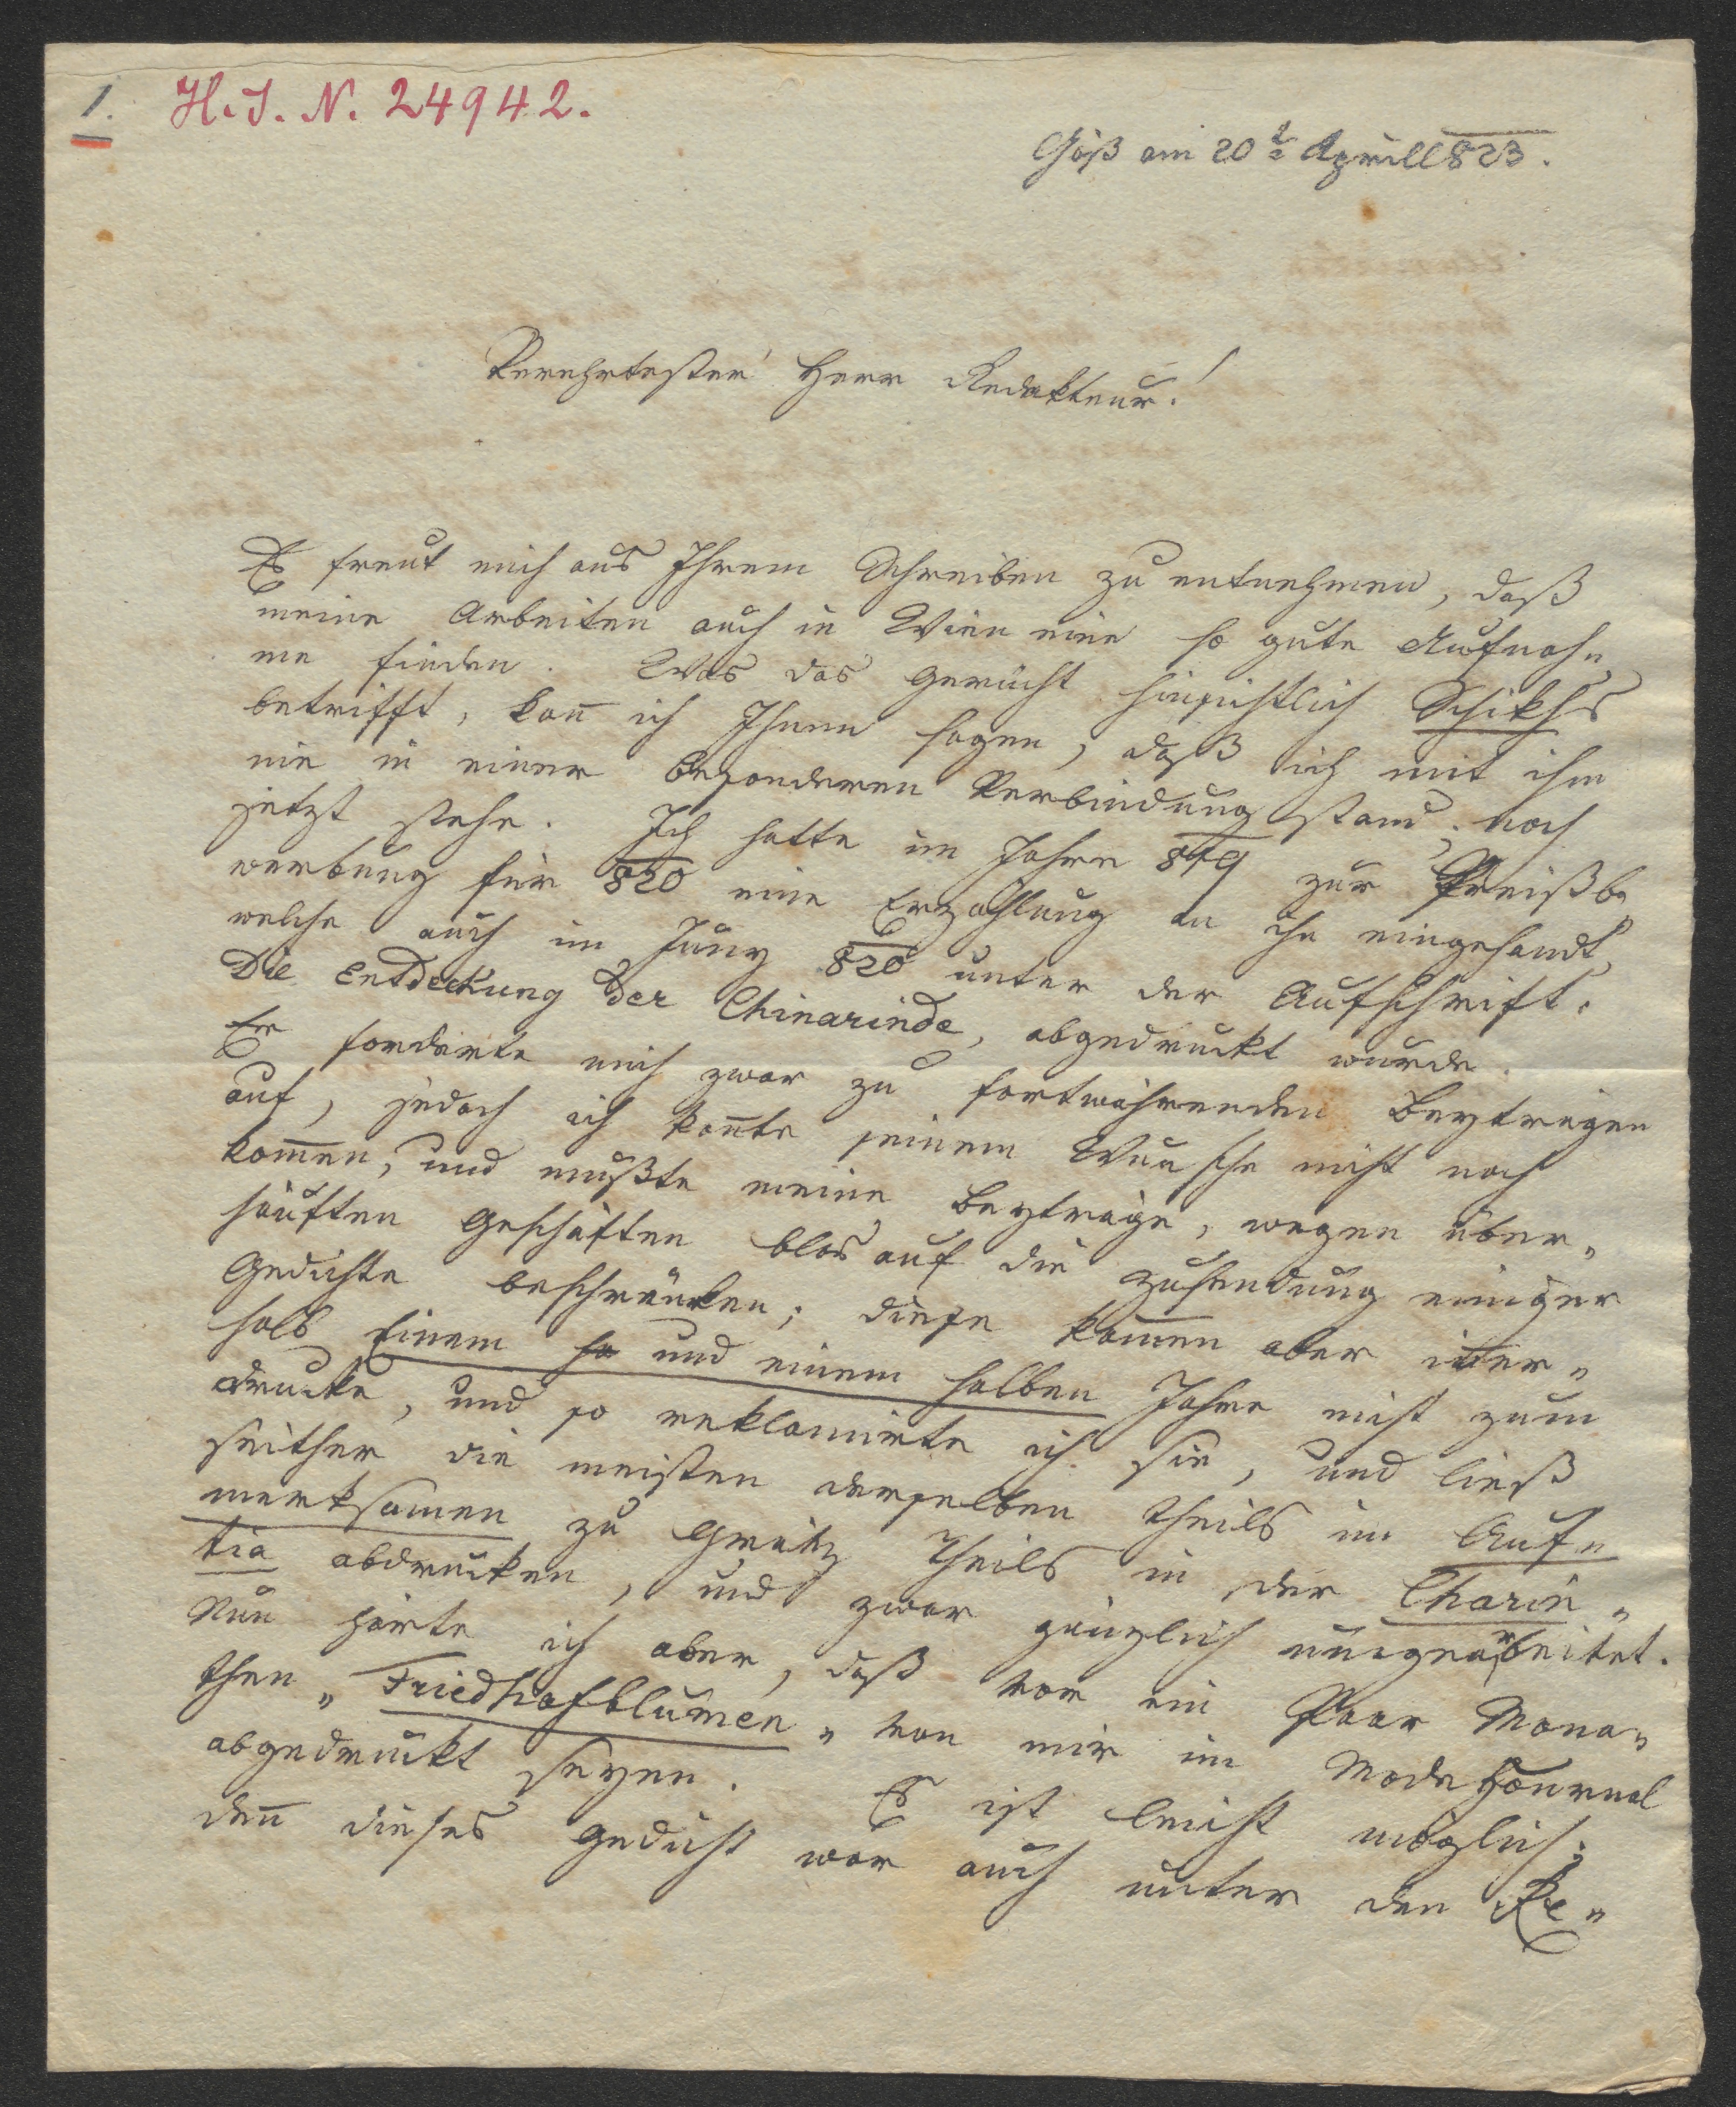 1. H. I. N. 24942.
Göß am 20t Aprill 823.
Verehrtester Herr Redakteur!
Es freut mich aus Ihrem Schreiben zu entnehmen, daß
meine Arbeiten auch in Wien eine so gute Aufnah„
me finden. Was das Gerücht hinsichtlich Schikhs
betrifft, kan̄ ich Ihnen sagen, daß ich mit ihm
nie in einer besonderen Verbindung stand, noch
jetzt stehe. Ich hatte im Jahre 819 zur Preißbe„
werbung für 820 eine Erzählung an ihn eingesandt,
welche auch im Juny 820 unter der Aufschrift:
Die Entdeckung der Chinarinde, abgedruckt wurde.
Er forderte mich zwar zu fortwährenden Beyträgen
auf, jedoch ich kon̄te seinem Wunsche nicht nach
kom̄en, und mußte meine Beyträge, wegen über„
häuften Geschäften blos auf die Zusendung einiger
Gedichte beschränken; diese kamen aber inner„
halb Einem ha und einem halben Jahre nicht zum
Drucke, und so reklamirte ich sie, und ließ
seither die meisten derselben theils im Auf„
merksamen zu Grätz theils in der Charin„
tia abdrucken, und zwar gänzlich umgearbeitet.
Nun hörte ich aber, daß vor ein Paar Mona„
then „Friedhofblumen„ von mir im Modejournal
abgedruckt seyen. Es ist leicht möglich;
den̄ dieses Gedicht war auch unter den Re„